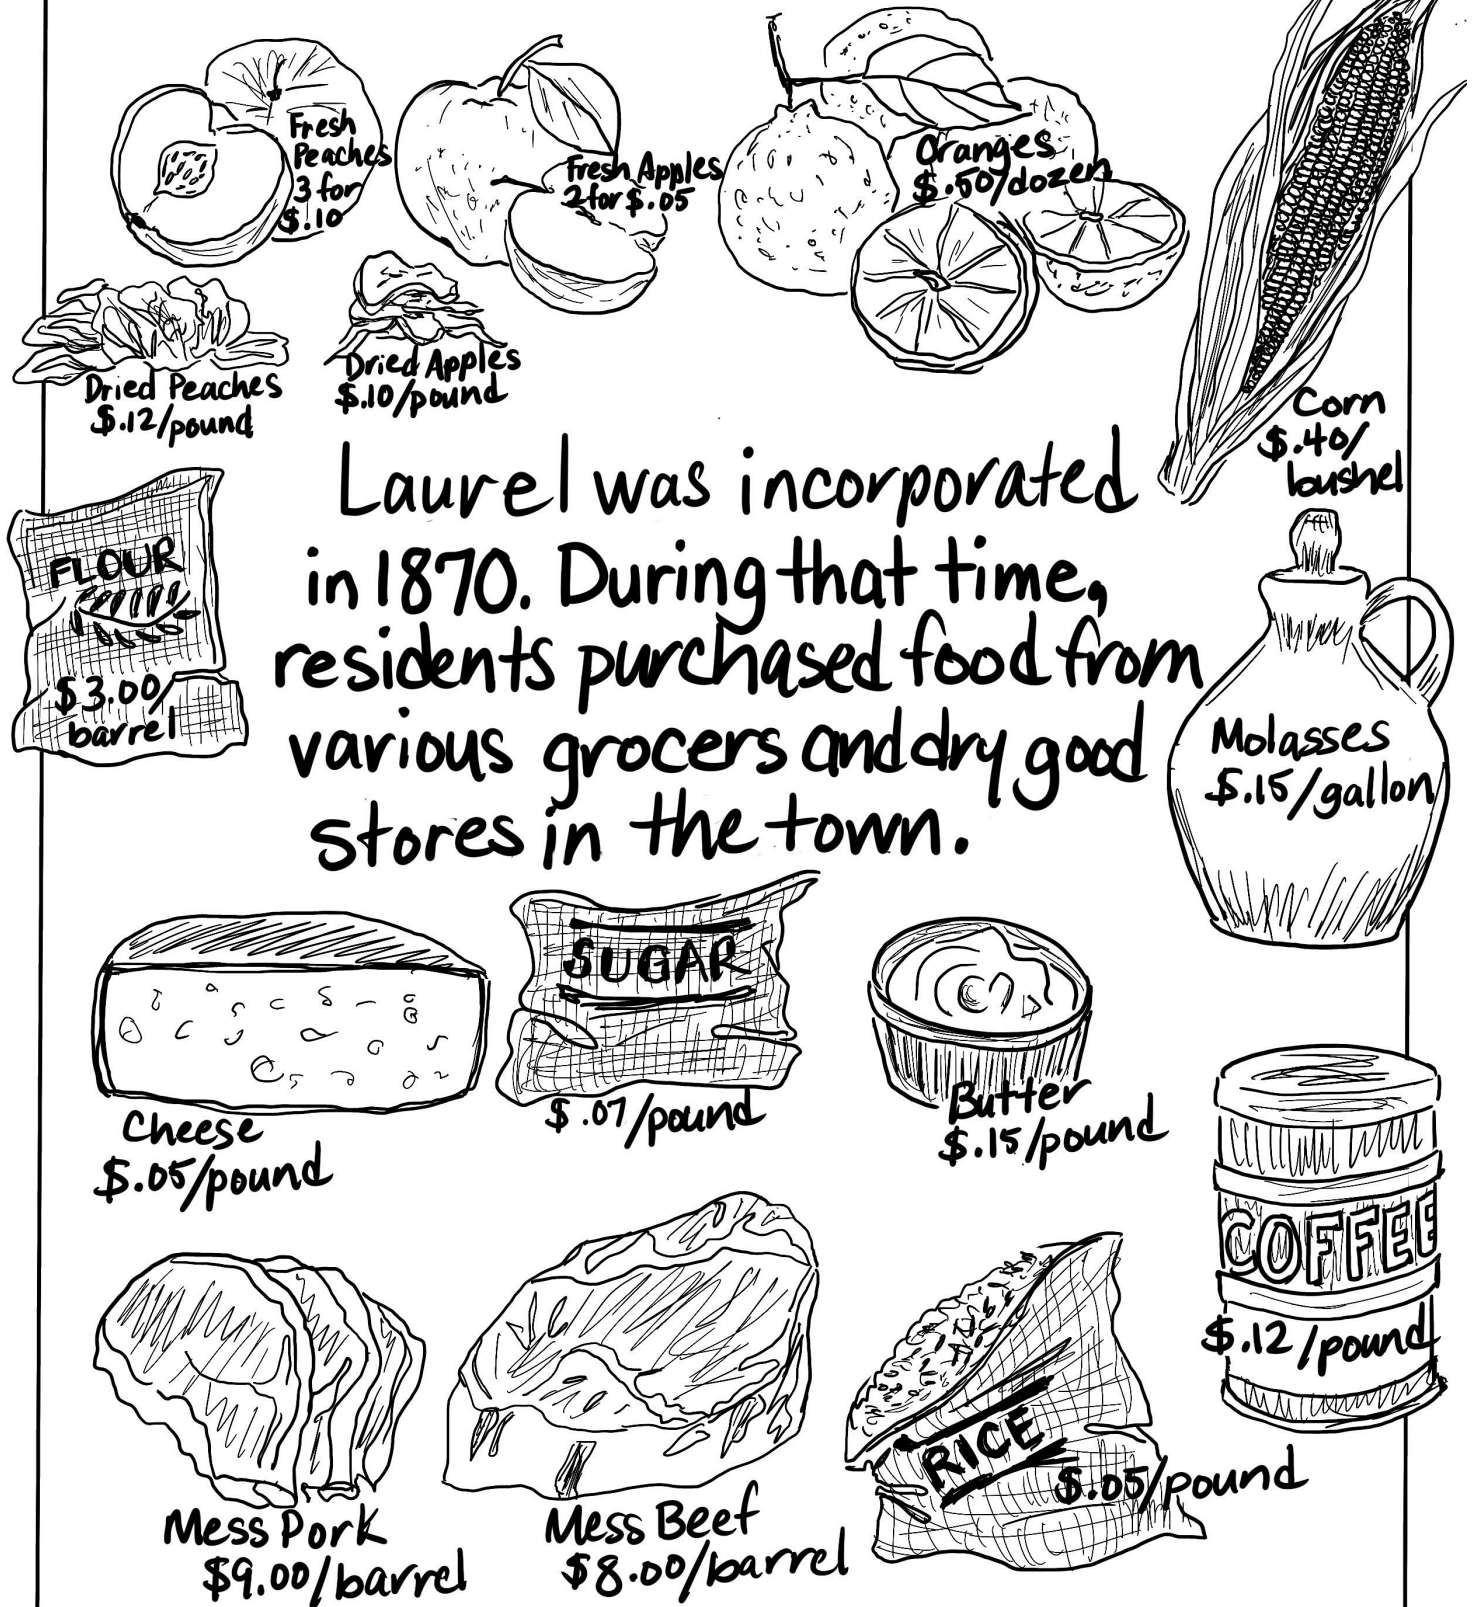 Fresh
Peaches
3 for
$.10
Fresh Apples
2 for $.05
Oranges
$.50/dozen
Dried Peaches
$.12/pound
Dried Apples
$.10/pound
Corn
$.40/
bushel
Laurel was incorporated
in 1870. During that time,
residents purchased food from
various grocers and dry good
stores in the town.
FLOUR
$3.00/
barrel
Molasses
$.15/gallon
Cheese
$.05/pound
SUGAR
$.07/pound
Butter
$.15/pound
COFFEE
$.12/pound
Mess Pork
$9.00/barrel
Mess Beef
$8.00/barrel
RICE
$.05/pound